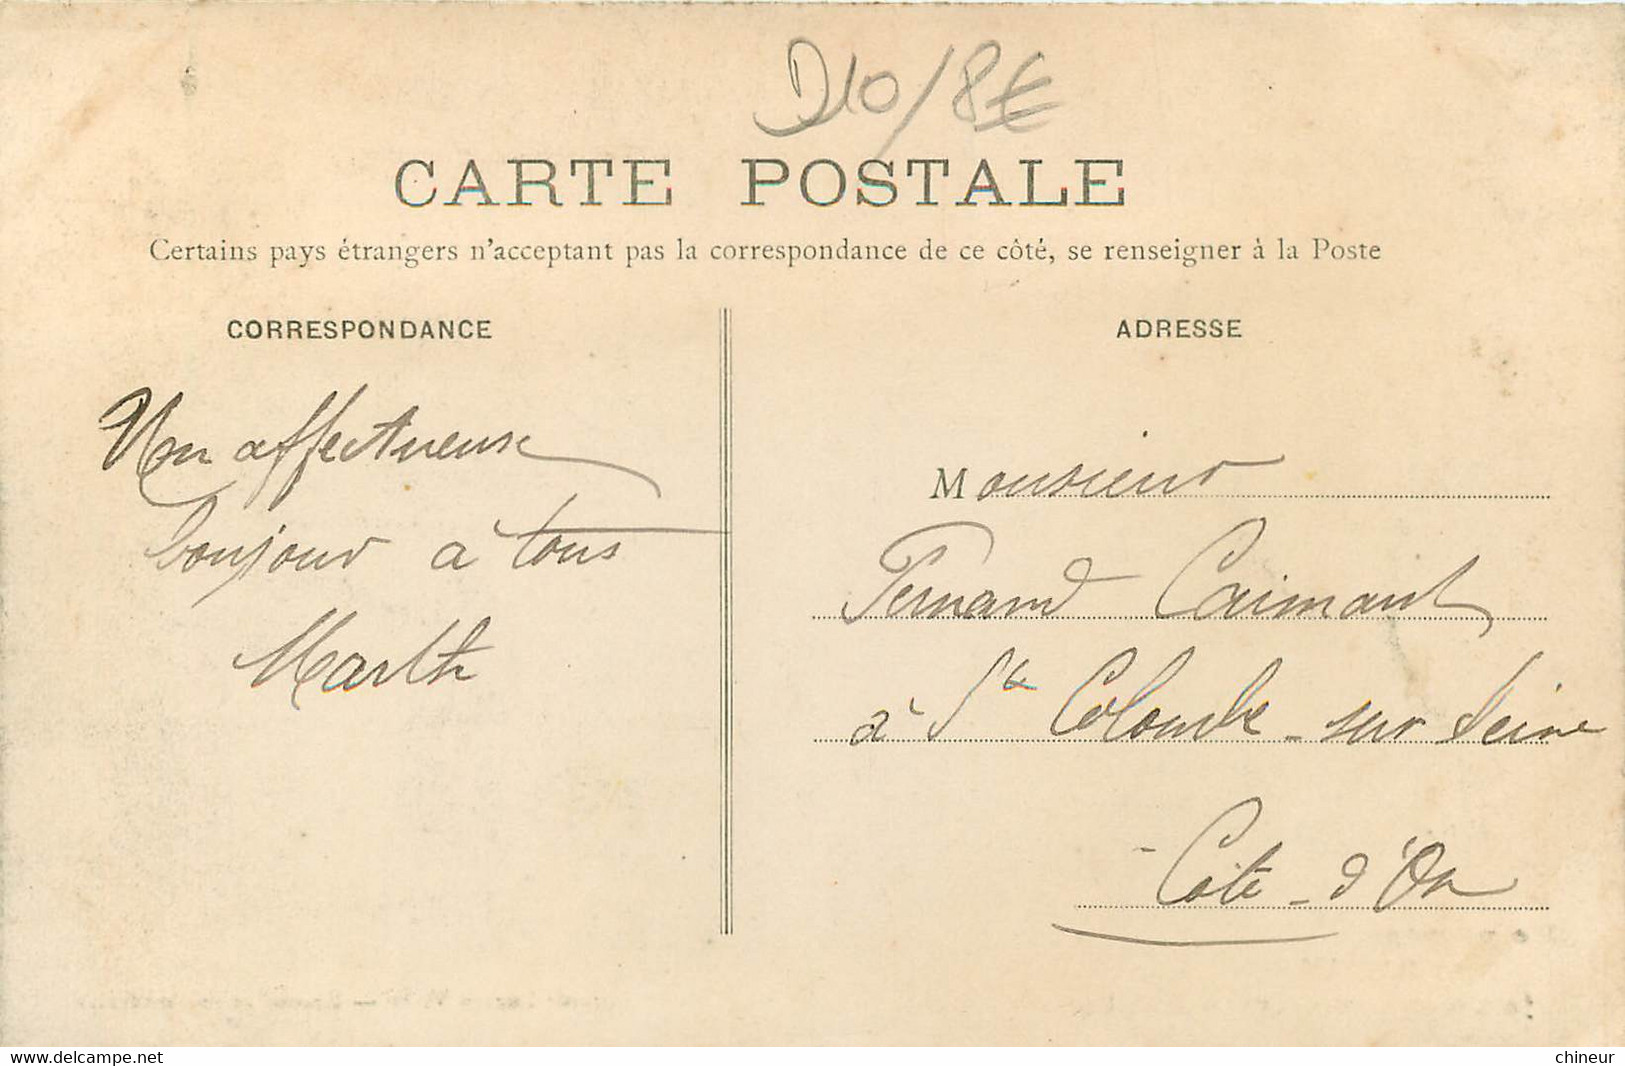 D10/8€
CARTE POSTALE
Certains pays étrangers n'acceptant pas la correspondance de ce côté, se renseigner à la Poste
CORRESPONDANCE
Un affectueux
bonjour à tous
Marthe
ADRESSE
Monsieur
Fernand Caimant
à Ste Colombe-sur Seine
- Côte-d'Or
www.delcampe.net
chineur